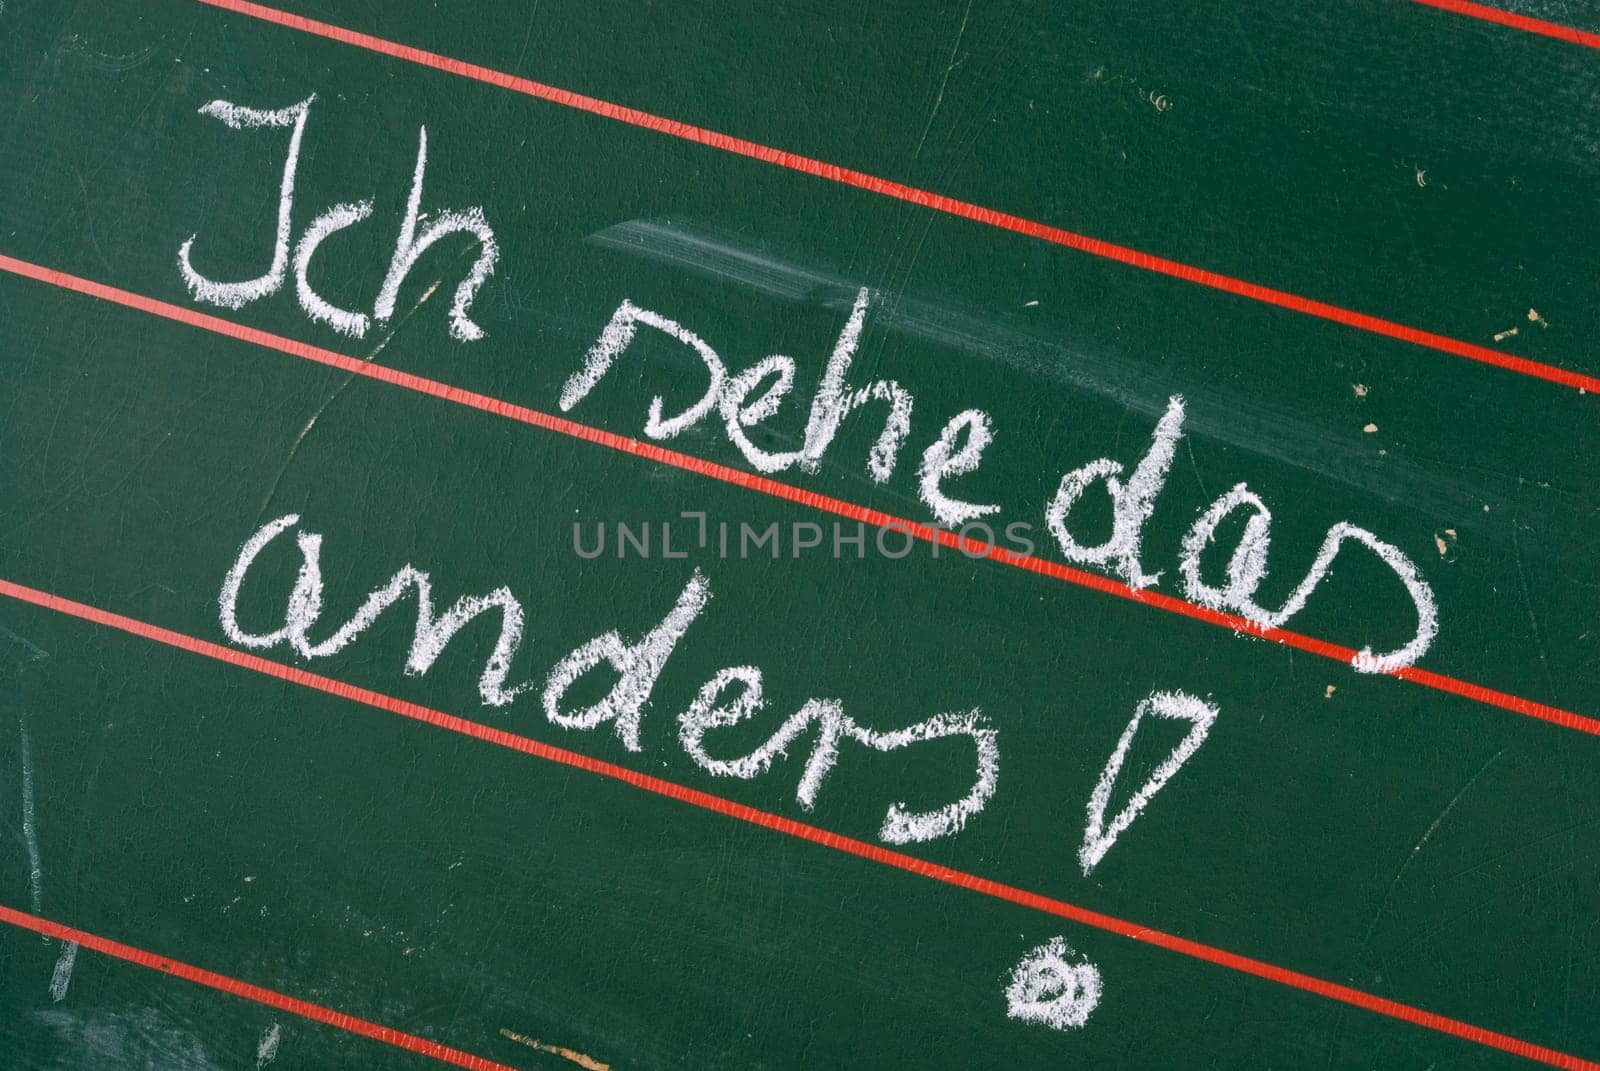 Ich sehe das
anders!
UNLIMPHOTOS